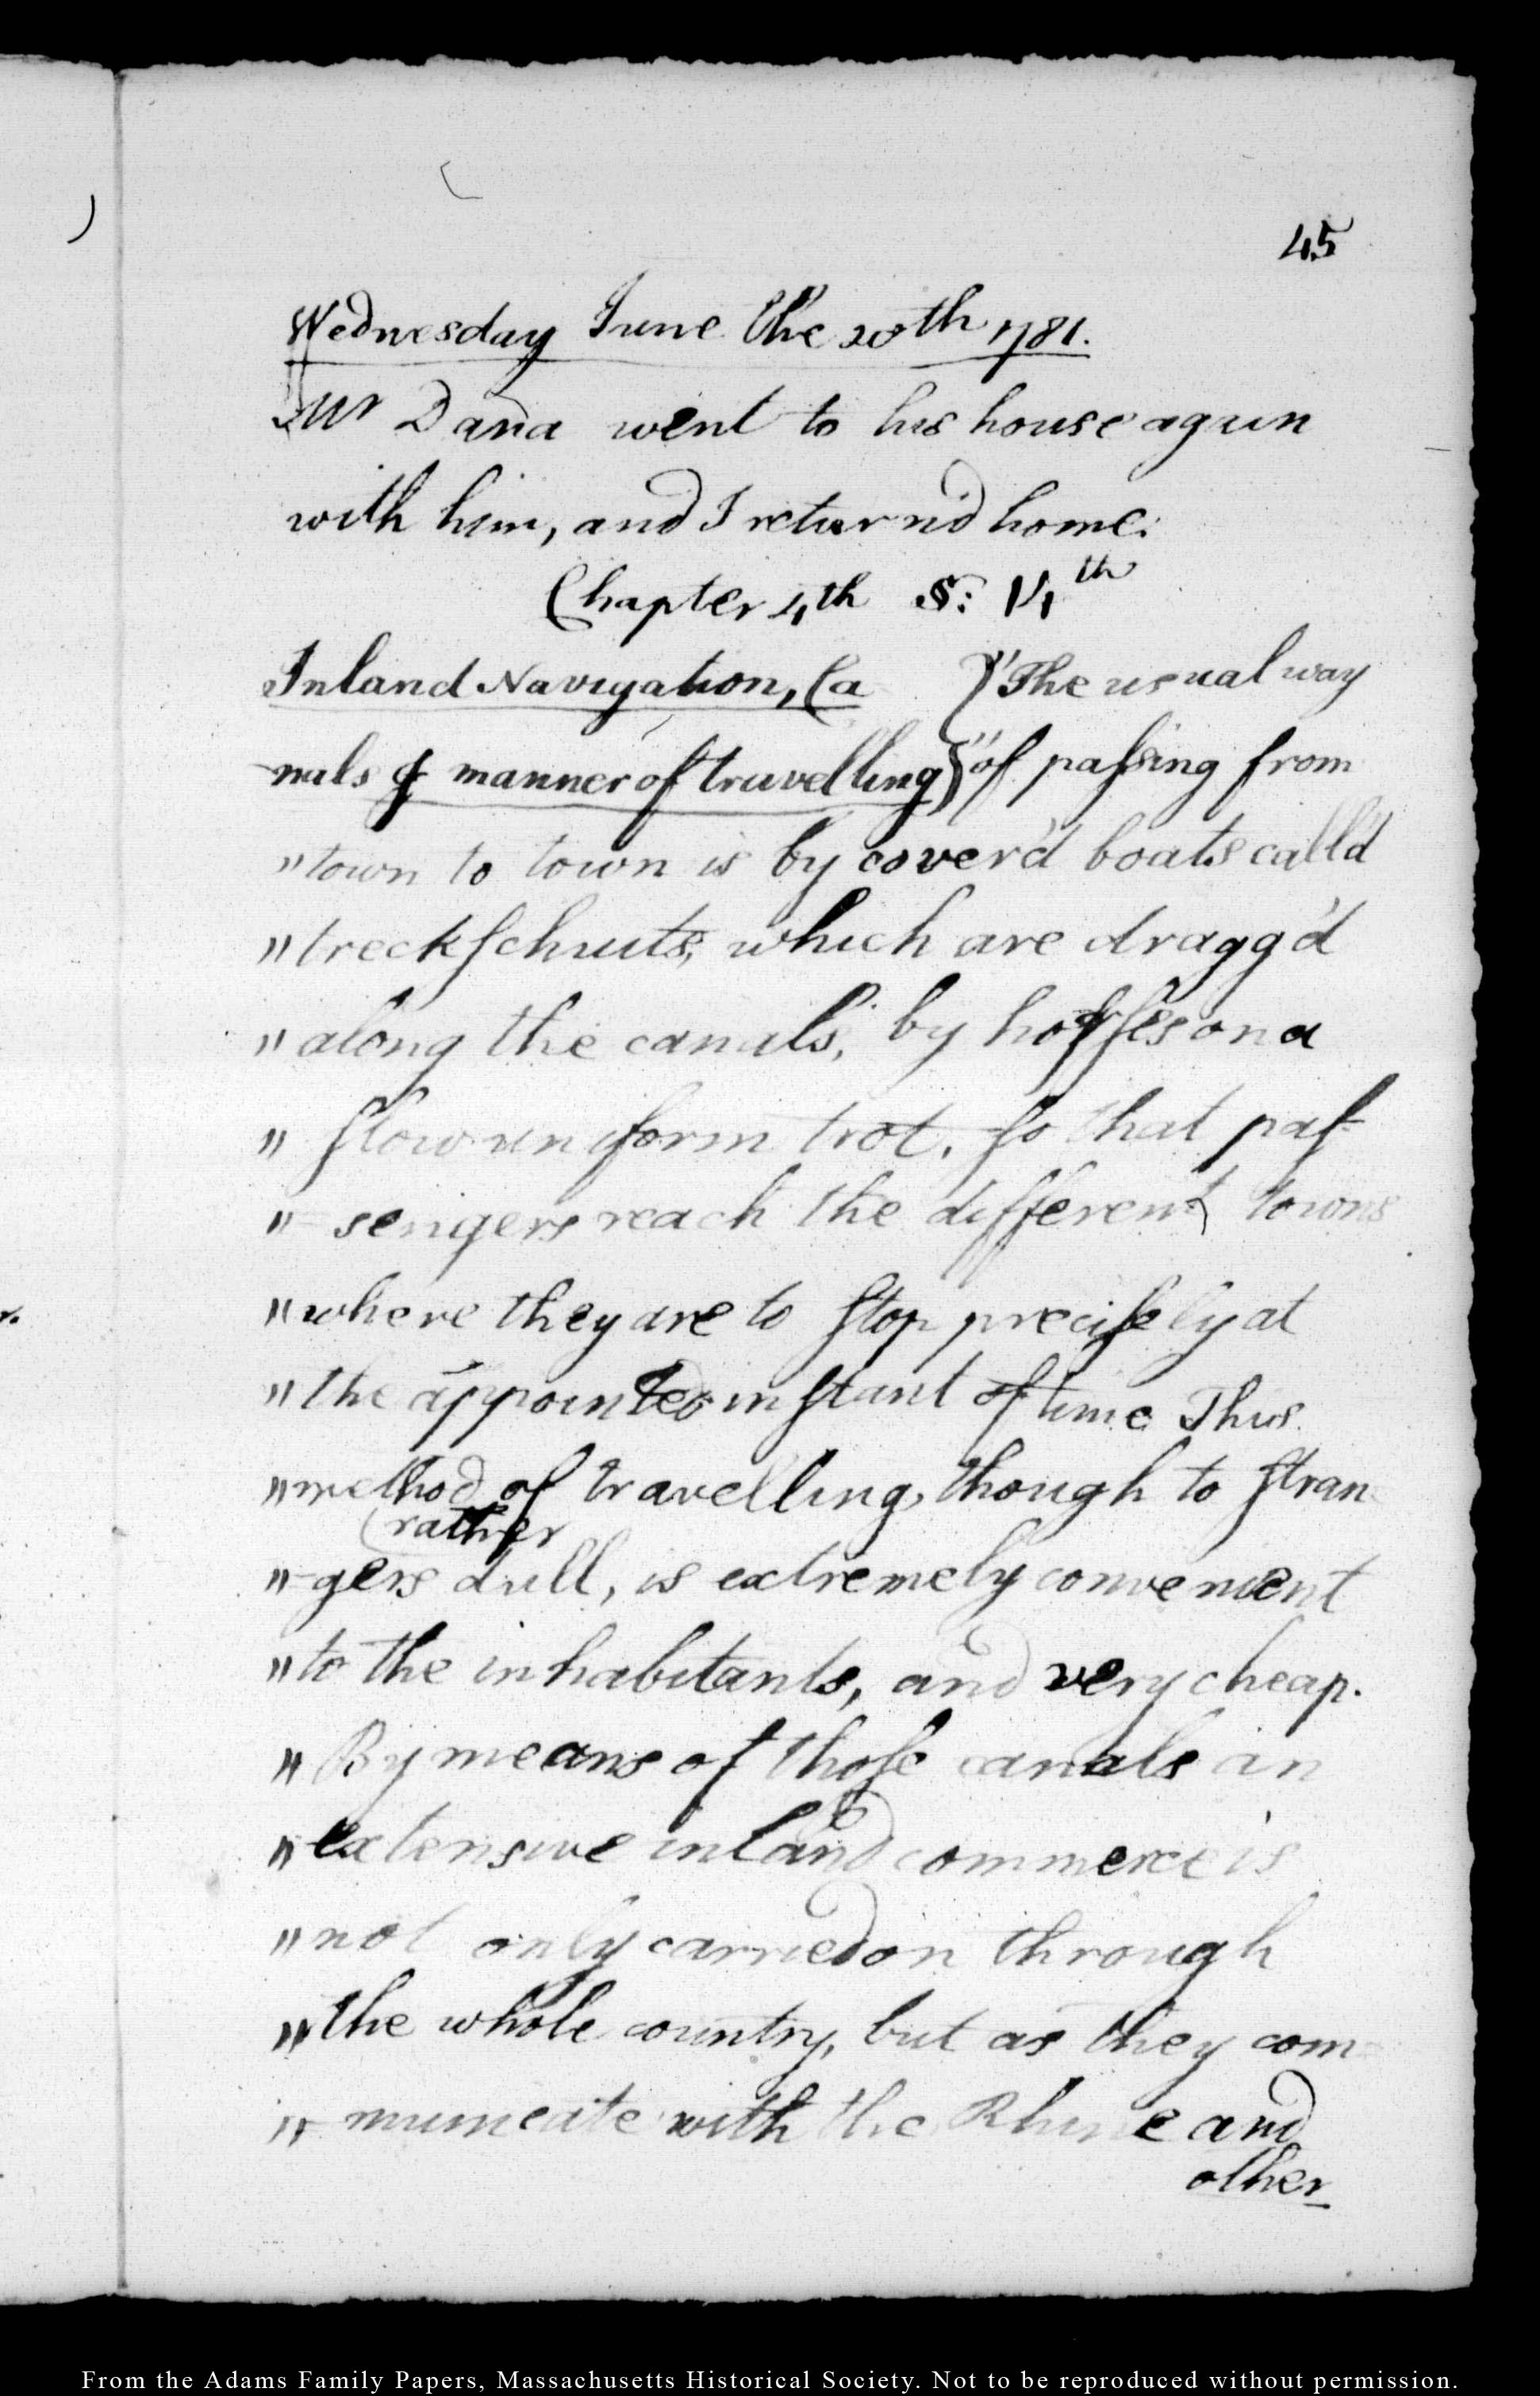 45
Wednesday June the 20th 1781.
Mr Dana went to his house again
with him, and I return'd home.
Chapter 4th S: 14th
Inland Navigation, Ca } "The usual way
nals & manner of travelling } "of passing from
"town to town is by cover'd boats call'd
"treckschuits, which are dragg'd
"along the canals, by horses on a
" slow uniform trot, so that pas
"-sengers reach the different towns
"where they are to stop precisely at
"the appointed instant of time This
"method of travelling, though to stran
rather
"-gers dull, is extremely convenient
"to the inhabitants, and very cheap.
"By means of those canals an
"extensive inland commerce is
"not only carried on through
"the whole country, but as they com
"-municate with the Rhine and
other
From the Adams Family Papers, Massachusetts Historical Society. Not to be reproduced without permission.